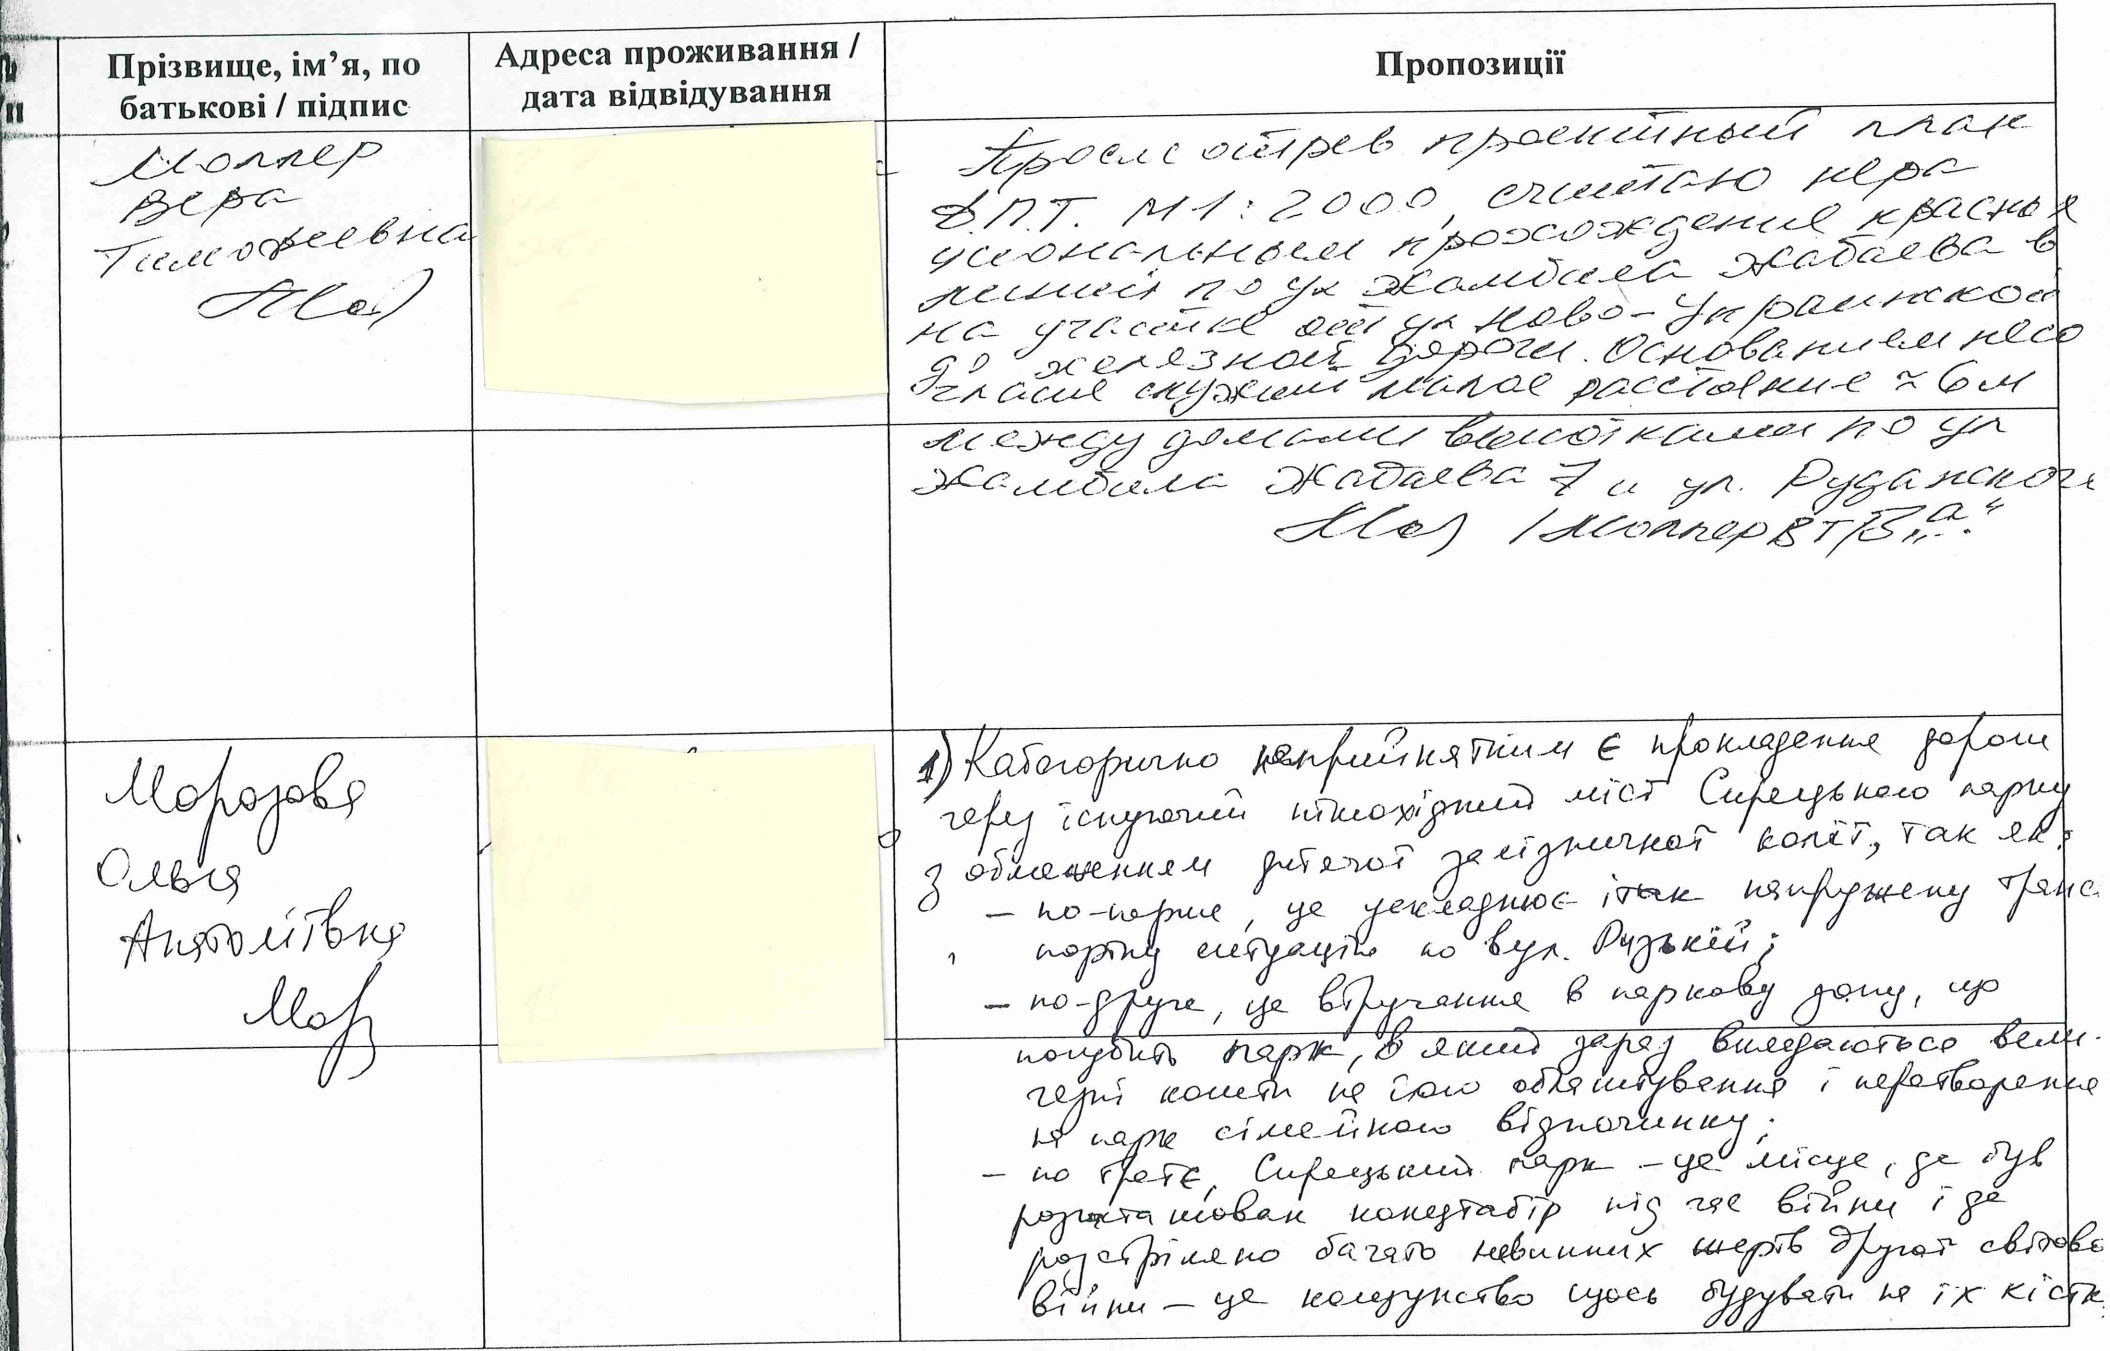 Прізвище, ім’я, по
батькові / підпис
Адреса проживання /
дата відвідування
Пропозиції
Моллер
Вера
Тимофеевна
Просмотрев проектный план
Д.П.Т. М1:2000, считаю нера
циональным прохождение красных
линий по ул Жамбила Жабаева в
на участке от ул Ново-Украинской
до железной дороги. Основанием несо
гласия служит малое расстояние ≈ 6м
между домами высотками по ул
Жамбила Жабаева 7 и ул. Руданского
/Моллер ВТ/ 3 „а“.
Морозова
Ольга
Анатоліївна
Мор
1) Категорично неприйнятним є прокладення дороги
через існуючий пішохідний міст Сирецького парку
з обмеженням дитячої залізничної колії, так як:
– по-перше, це ускладнює ітак напружену транс
портну ситуацію по вул. Ризькій;
– по-друге, це втручання в паркову зону, що
погубить парк, в який зараз вкладаються вели-
чезні кошти на його облаштування і перетворення
на парк сімейного відпочинку;
– по третє, Сирецький парк – це місце, де був
розташован концтабір під час війни і де
розстріляно багато невинних жертв другої світово
війни – це кощунство щось будувати на їх кістк